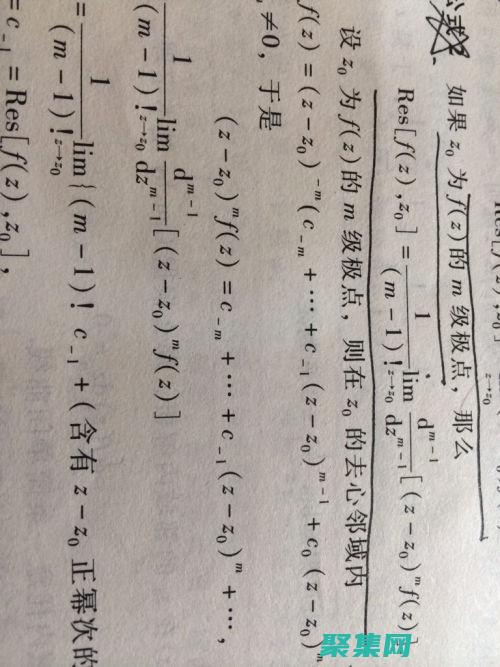 公式
如果 z₀ 为 f(z) 的 m 级极点，那么
Res[f(z),z₀] = 1/(m-1)! lim_{z→z₀} d^{m-1}/dz^{m-1} [(z-z₀)^m f(z)]
设 z₀ 为 f(z) 的 m 级极点，则在 z₀ 的去心邻域内
f(z) = (z-z₀)^{-m} (c_{-m} + ⋯ + c_{-1}(z-z₀)^{m-1} + c₀(z-z₀)^m
≠0，于是
(z-z₀)^m f(z) = c_{-m} + ⋯ + c_{-1}(z-z₀)^m + ⋯,
1/(m-1)! lim_{z→z₀} d^{m-1}/dz^{m-1} [(z-z₀)^m f(z)]
= 1/(m-1)! lim_{z→z₀} {(m-1)! c_{-1} + (含有 z-z₀ 正幂次的
= c_{-1} = Res[f(z),z₀],
聚集网